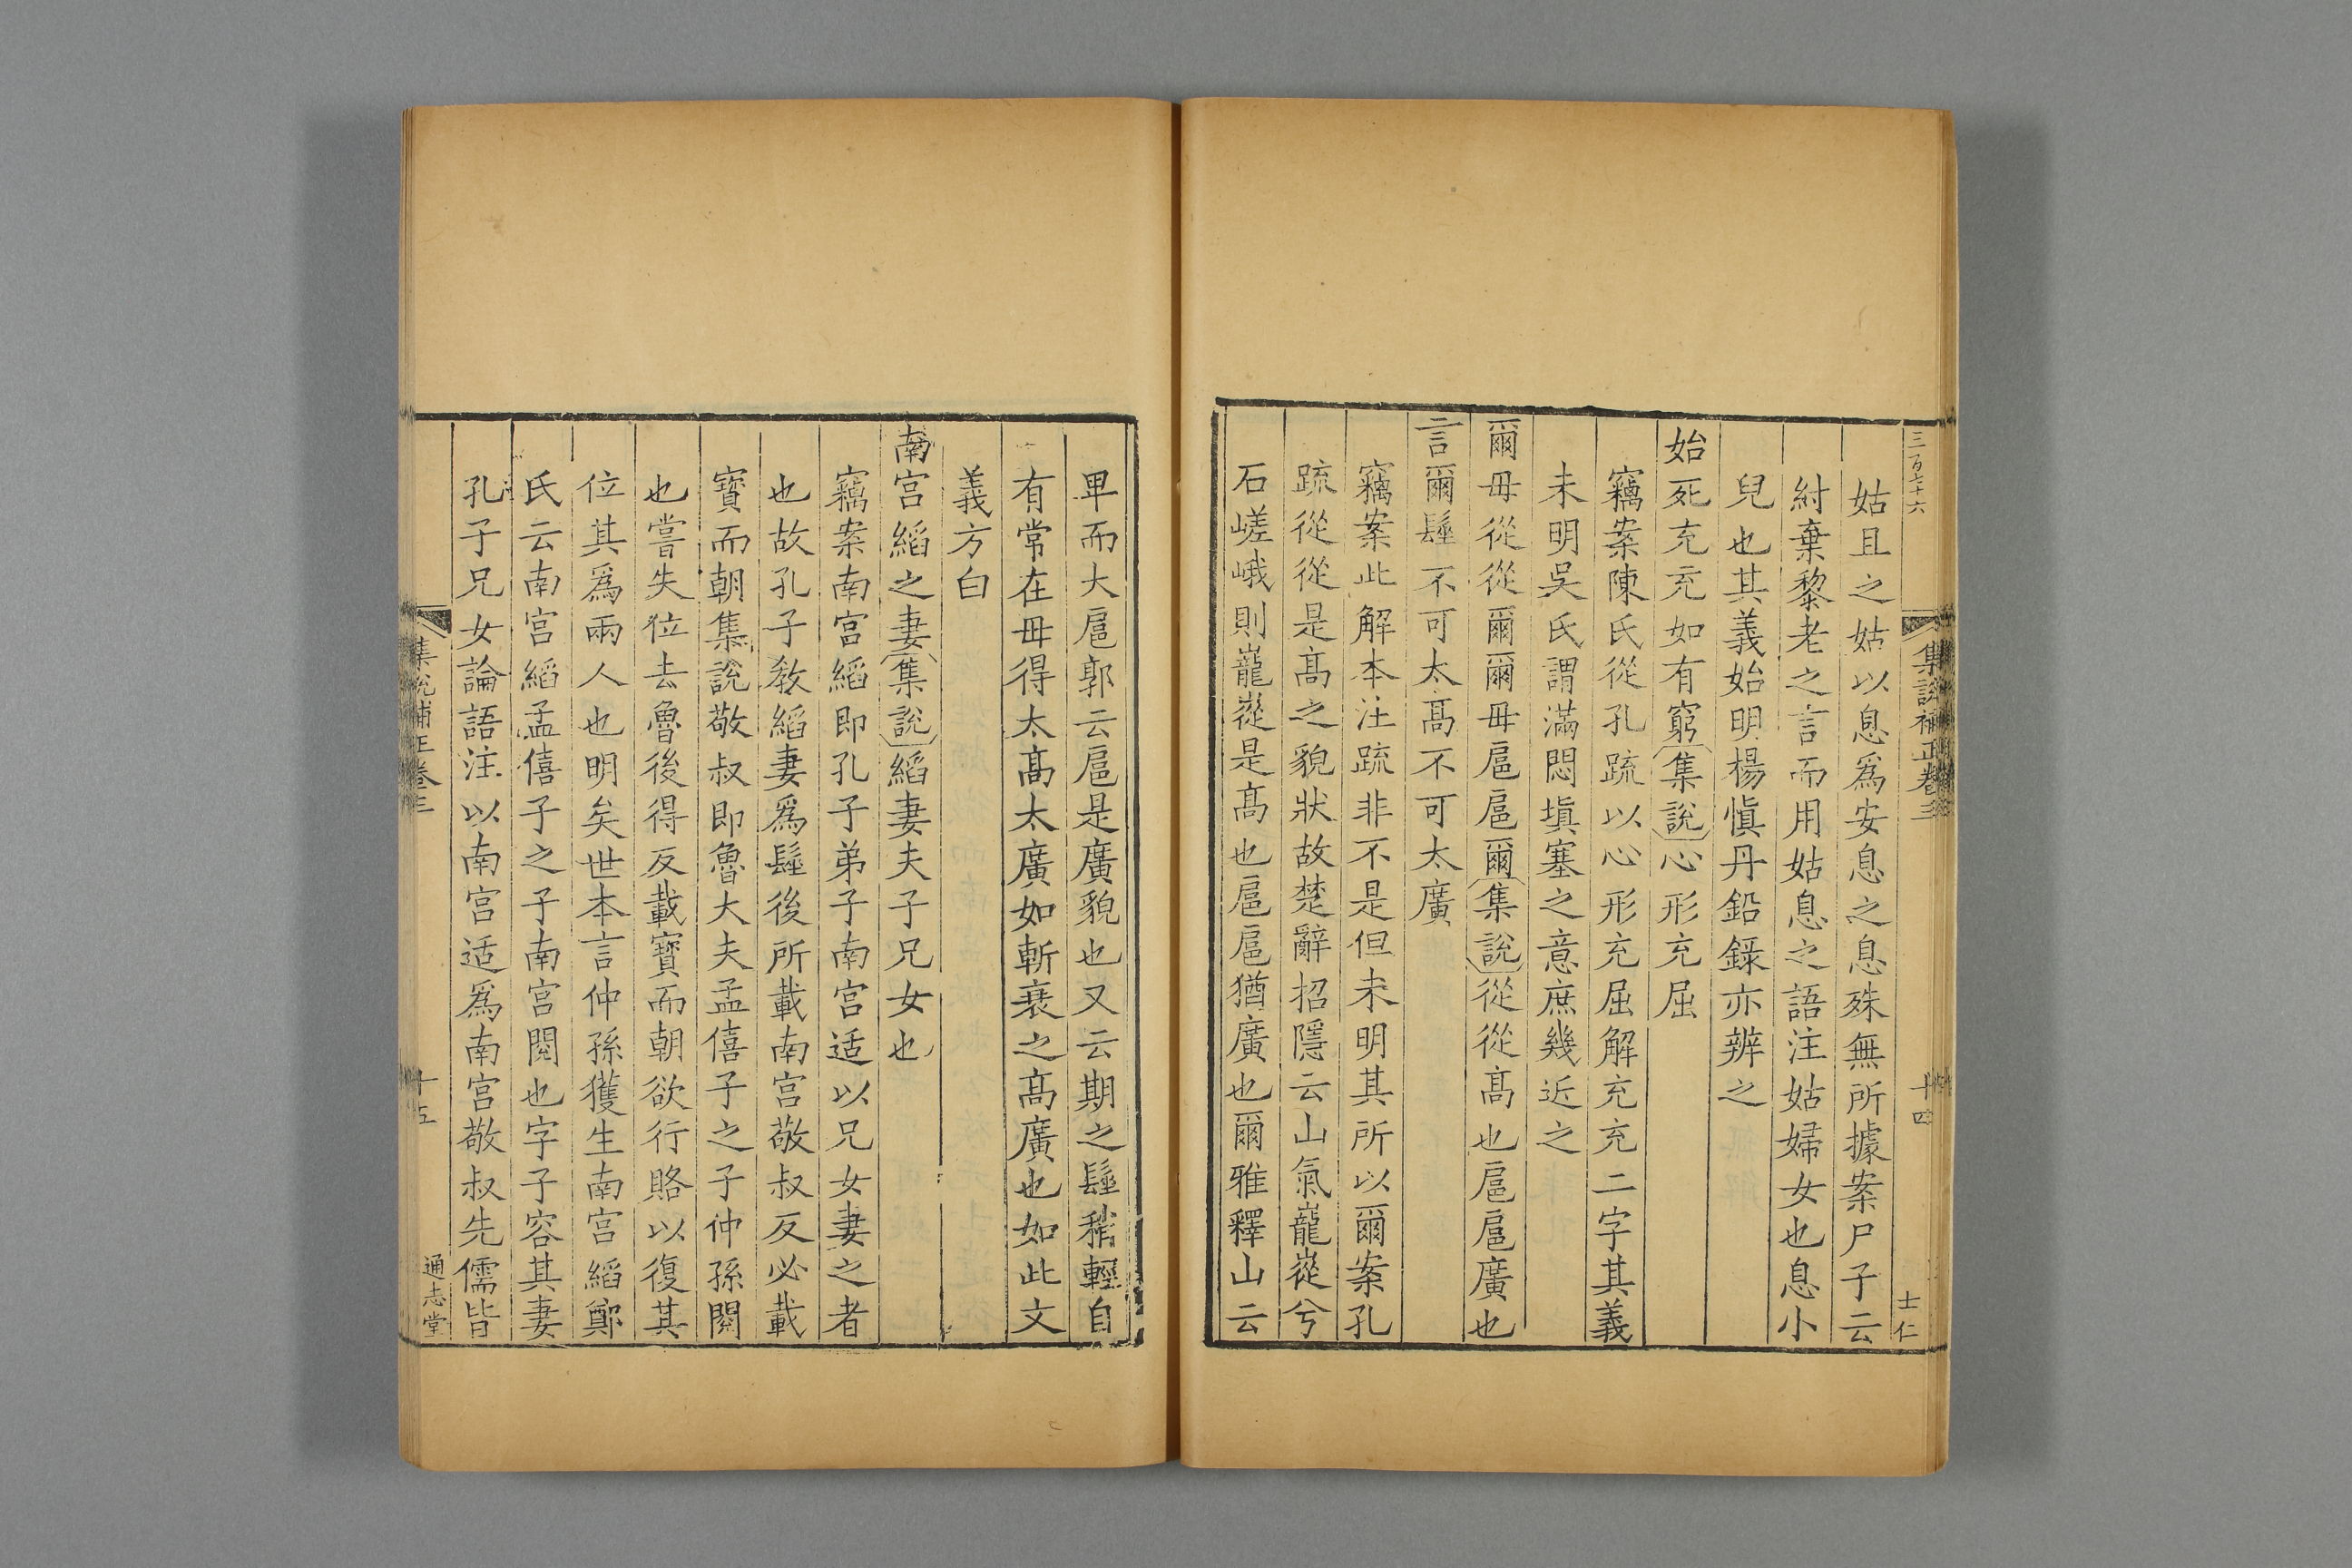 三百七十六
集説補正卷三
十四
士仁
姑且之姑以息爲安息之息殊無所據案尸子云
紂棄黎老之言而用姑息之語注姑婦女也息小
兒也其義始明楊慎丹鉛録亦辨之
始死充充如有窮集説心形充屈
竊案陳氏從孔疏以心形充屈解充充二字其義
未明吳氏謂滿悶塡塞之意庶幾近之
爾毋從從爾爾毋扈扈爾集説從從髙也扈扈廣也
言爾髽不可太髙不可太廣
竊案此解本注疏非不是但未明其所以爾案孔
疏從從是髙之貌狀故楚辭招隱云山氣巃嵷兮
石嵯峨則巃嵷是髙也扈扈猶廣也爾雅釋山云
卑而大扈郭云扈是廣貌也又云期之髽稍輕自
有常在毋得太髙太廣如斬衰之髙廣也如此文
義方白
南宮縚之妻集説縚妻夫子兄女也
竊案南宮縚即孔子弟子南宮适以兄女妻之者
也故孔子敎縚妻爲髽後所載南宮敬叔反必載
寳而朝集説敬叔即魯大夫孟僖子之子仲孫閱
也嘗失位去魯後得反載寳而朝欲行賂以復其
位其爲兩人也明矣世本言仲孫獲生南宮縚鄭
氏云南宮縚孟僖子之子南宮閱也字子容其妻
孔子兄女論語注以南宮适爲南宮敬叔先儒皆
集説補正卷三
十五
通志堂